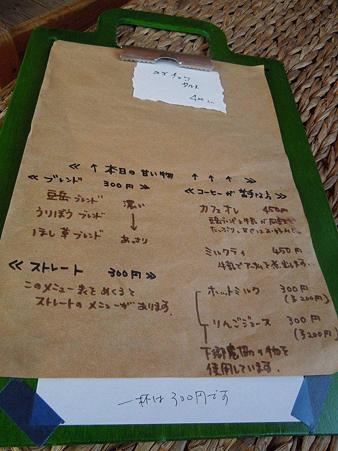 タルト
≪ ↑ 本日の甘い物 ↑ ↑ ↑ ≫
≪ ブレンド 300円 ≫
豆岳ブレンド 濃い
うりぼうブレンド ↓
ほし草ブレンド あっさり
≪ ストレート 300円 ≫
このメニュー表をめくると
ストレートのメニューがあります。
≪コーヒーが苦手な方≫
カフェオレ 450円
ミルクティ 450円
牛乳で
煮出します。
ホットミルク 300円
(小200円)
りんごジュース 300円
(小200円)
下郷農協の物を
使用しています。
一杯は300円です